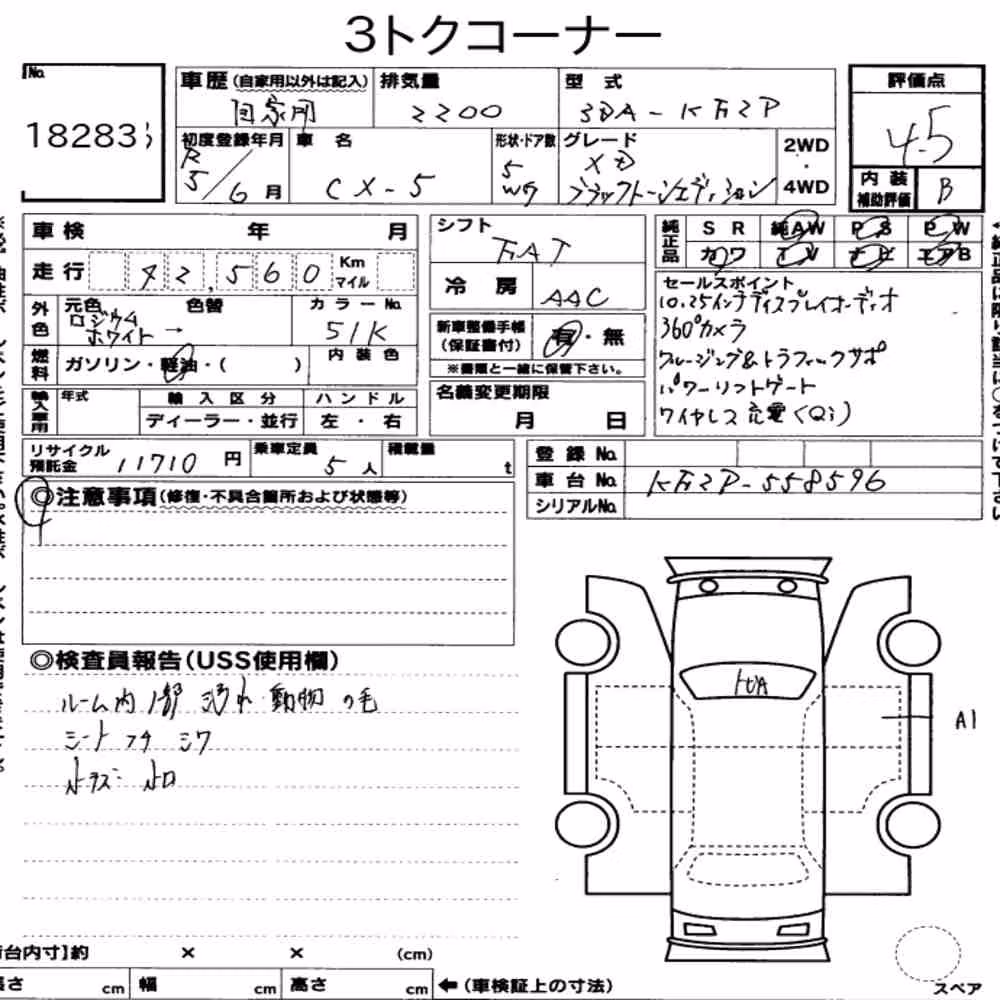 3トクコーナー
No.
18283
車歴(自家用以外は記入)
自家用
排気量
2200
型式
3DA-KF2P
評価点
4.5
初度登録年月
R5/6月
車名
CX-5
形状・ドア数
5
WG
グレード
XD
ブラックトーンエディション
2WD
・
4WD
内装
補助評価
B
車検 年 月
走行 42,560 Km
マイル
外色
元色 色替
ロジウム
ホワイト →
カラーNo.
51K
燃料
ガソリン・軽油・( )
内装色
輸入車用
年式
輸入区分
ディーラー・並行
ハンドル
左・右
シフト
FAT
冷房
AAC
新車整備手帳
(保証書付)
有・無
※書類と一緒に保管下さい。
名義変更期限
月 日
純正品
SR 純AW PS PW
カワ TV ナビ エアB
セールスポイント
10.25インチディスプレイオーディオ
360°カメラ
クルージング&トラフィックサポ
パワーリフトゲート
ワイヤレス充電(Qi)
リサイクル
預託金 11710 円
乗車定員
5人
積載量
t
登録No.
車台No. KF2P-558596
シリアルNo.
◎注意事項(修復・不具合箇所および状態等)
◎検査員報告(USS使用欄)
ルーム内1部汚れ 動物の毛
シートフチ シワ
A1
【荷台内寸】約 × × (cm)
長さ cm 幅 cm 高さ cm ←(車検証上の寸法)
スペア